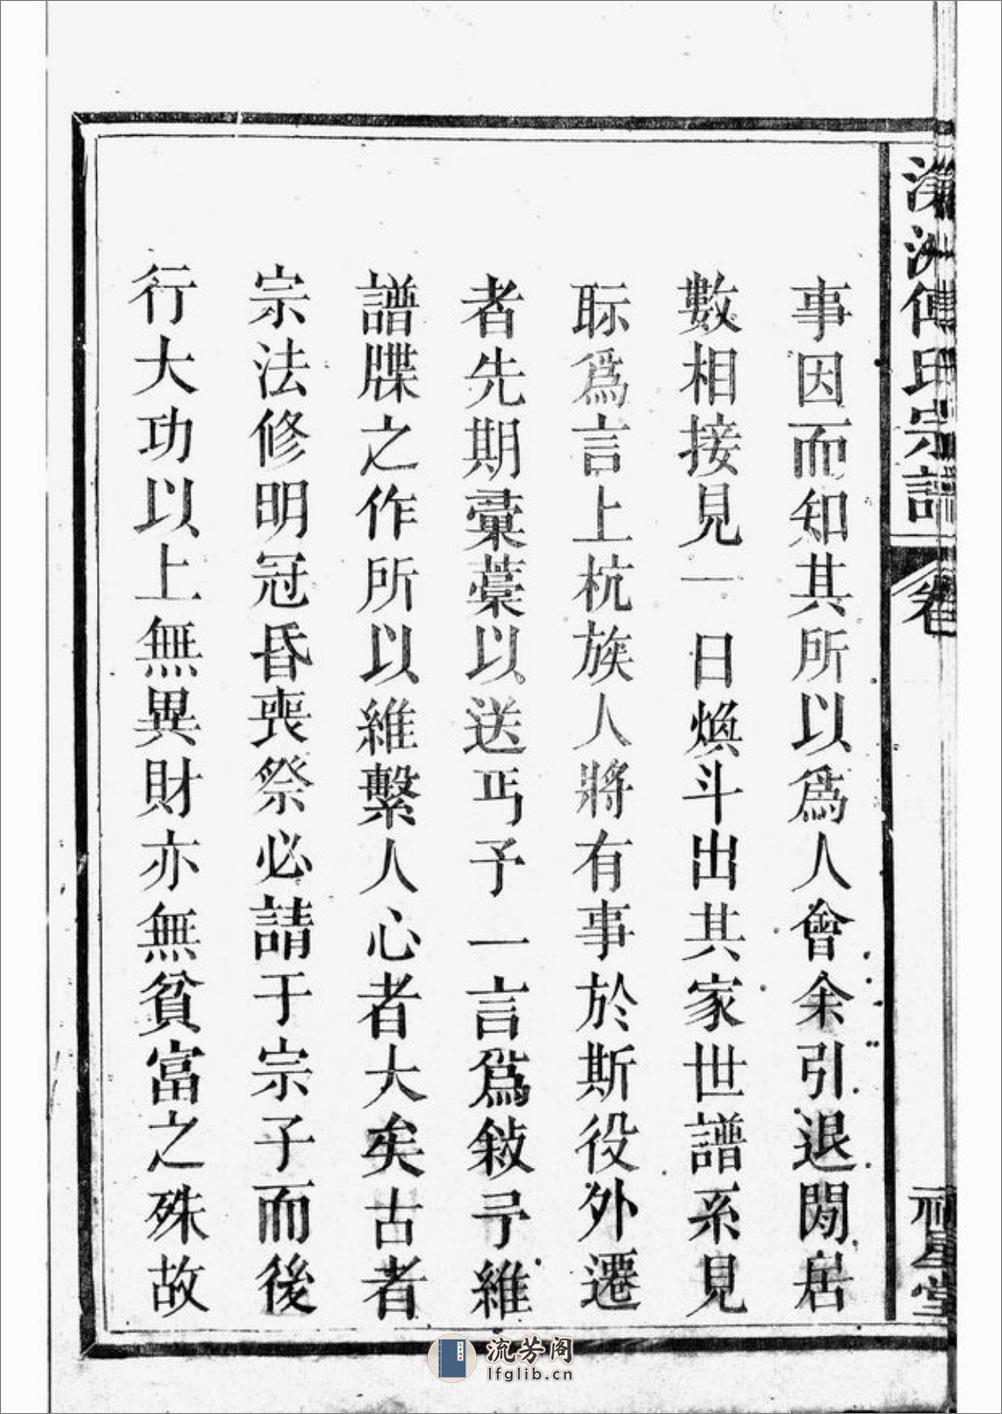 傅氏宗譜
卷
堂
事因而知其所以爲人會余引退閒居
數相接見一日煥斗出其家世譜系見
眎爲言上杭族人將有事於斯役外遷
者先期彙藁以送丐予一言爲敍予維
譜牒之作所以維繫人心者大矣古者
宗法修明冠昏喪祭必請于宗子而後
行大功以上無異財亦無貧富之殊故
流芳阁
lfglib.cn